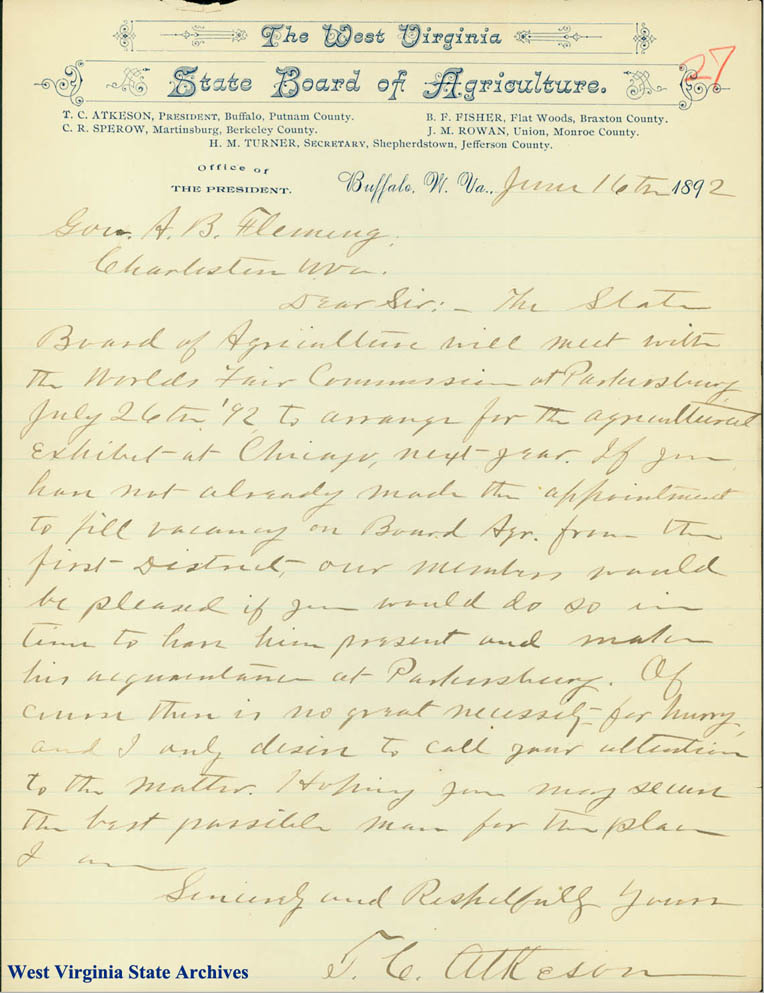 The West Virginia
State Board of Agriculture.
27
T. C. ATKESON, PRESIDENT, Buffalo, Putnam County.
B. F. FISHER, Flat Woods, Braxton County.
C. R. SPEROW, Martinsburg, Berkeley County.
J. M. ROWAN, Union, Monroe County.
H. M. TURNER, SECRETARY, Shepherdstown, Jefferson County.
Office of
THE PRESIDENT.
Buffalo, W. Va., June 16th 1892
Gov. A. B. Fleming,
Charleston W Va.
Dear Sir:- The State
Board of Agriculture will meet with
the Worlds Fair Commission at Parkersburg,
July 26th '92, to arrange for the agricultural
exhibit at Chicago, next year. If you
have not already made the appointment
to fill vacancy on Board Agr. from the
first District, our members would
be pleased if you would do so in
time to have him present and make
his acquaintance at Parkersburg. Of
course there is no great necessity for hurry,
and I only desire to call your attention
to the matter. Hoping you may secure
the best possible man for the place
I am
Sincerely and Respectfully Yours
T. C. Atkeson
West Virginia State Archives